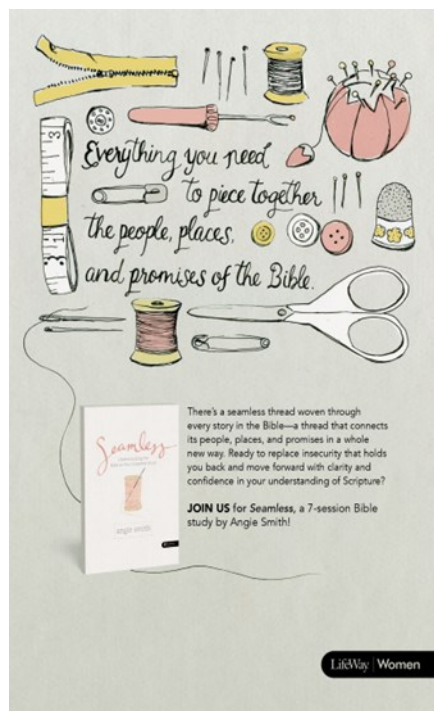 Everything you need
to piece together
the people, places,
and promises of the Bible.
There's a seamless thread woven through
every story in the Bible—a thread that connects
its people, places, and promises in a whole
new way. Ready to replace insecurity that holds
you back and move forward with clarity and
confidence in your understanding of Scripture?
JOIN US for Seamless, a 7-session Bible
study by Angie Smith!
Seamless
angie smith
LifeWay | Women